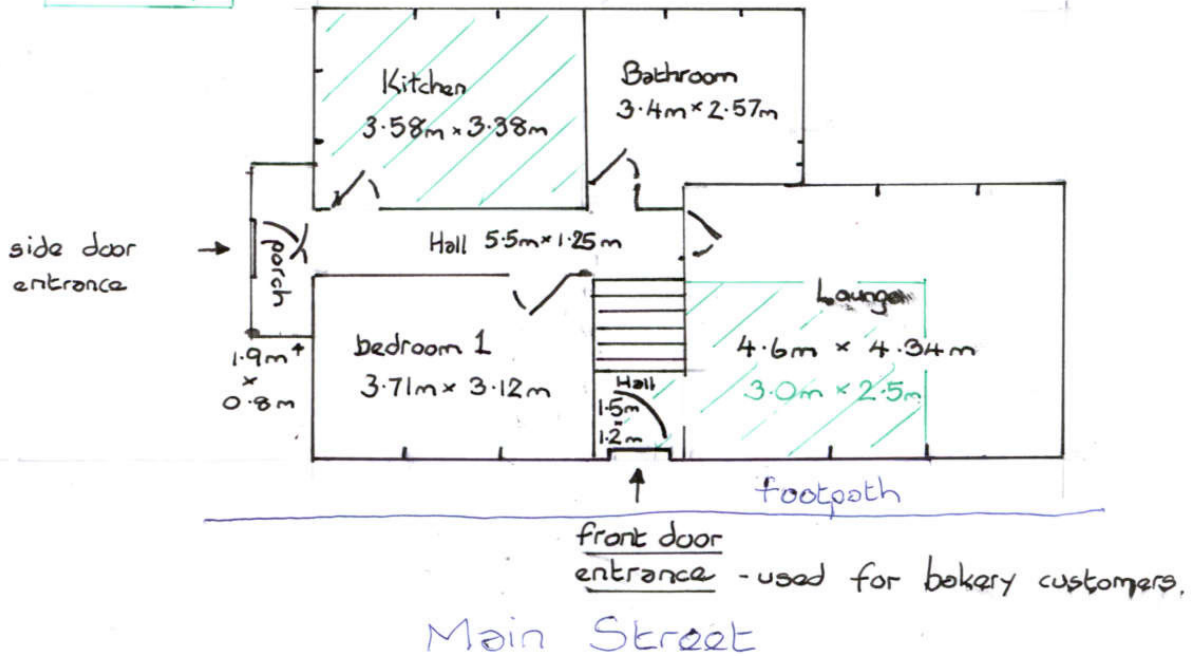 Kitchen
3.58m × 3.38m
Bathroom
3.4m × 2.57m
side door
entrance
porch
Hall 5.5m × 1.25m
1.9m
×
0.8m
bedroom 1
3.71m × 3.12m
Hall
1.5m
×
1.2m
Lounge
4.6m × 4.34m
3.0m × 2.5m
footpath
front door
entrance - used for bakery customers.
Main Street